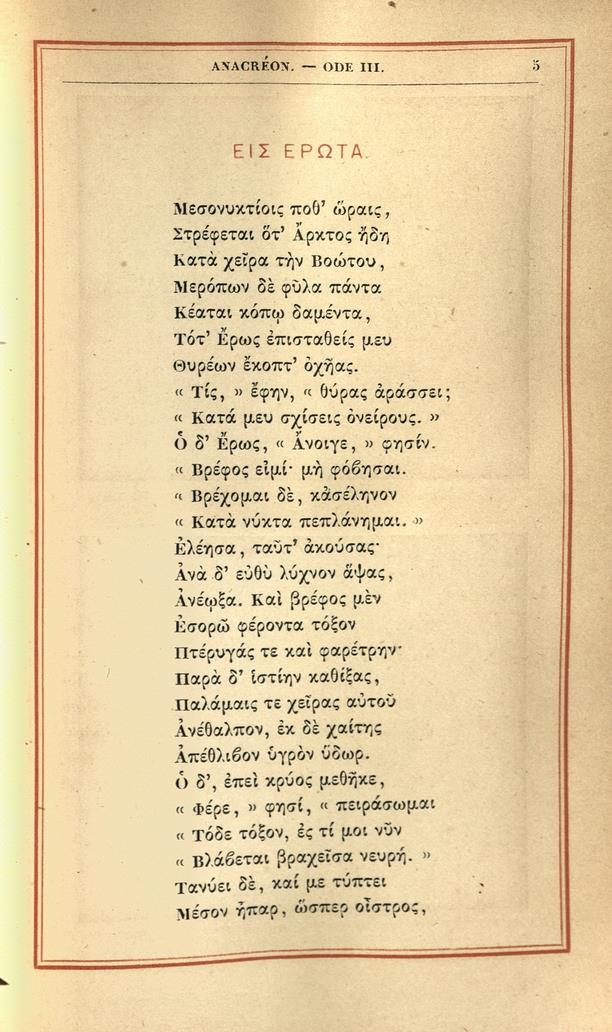 ANACRÉON. — ODE III. 5
ΕΙΣ ΕΡΩΤΑ.
Μεσονυκτίοις ποθ’ ὥραις,
Στρέφεται ὅτ’ Ἄρκτος ἤδη
Κατὰ χεῖρα τὴν Βοώτου,
Μερόπων δὲ φῦλα πάντα
Κέαται κόπῳ δαμέντα,
Τότ’ Ἔρως ἐπισταθείς μευ
Θυρέων ἔκοπτ’ ὀχῆας.
« Τίς, » ἔφην, « θύρας ἀράσσει;
« Κατά μευ σχίσεις ὀνείρους. »
Ὁ δ’ Ἔρως, « Ἄνοιγε, » φησίν.
« Βρέφος εἰμί· μὴ φόϐησαι.
« Βρέχομαι δὲ, κἀσέληνον
« Κατὰ νύκτα πεπλάνημαι. »
Ἐλέησα, ταῦτ’ ἀκούσας·
Ἀνὰ δ’ εὐθὺ λύχνον ἅψας,
Ἀνέῳξα. Καὶ βρέφος μὲν
Ἐσορῶ φέροντα τόξον
Πτέρυγάς τε καὶ φαρέτρην·
Παρὰ δ’ ἱστίην καθίξας,
Παλάμαις τε χεῖρας αὐτοῦ
Ἀνέθαλπον, ἐκ δὲ χαίτης
Ἀπέθλιϐον ὑγρὸν ὕδωρ.
Ὁ δ’, ἐπεὶ κρύος μεθῆκε,
« Φέρε, » φησί, « πειράσωμαι
« Τόδε τόξον, ἐς τί μοι νῦν
« Βλάϐεται βραχεῖσα νευρή. »
Τανύει δὲ, καί με τύπτει
Μέσον ἧπαρ, ὥσπερ οἶστρος,